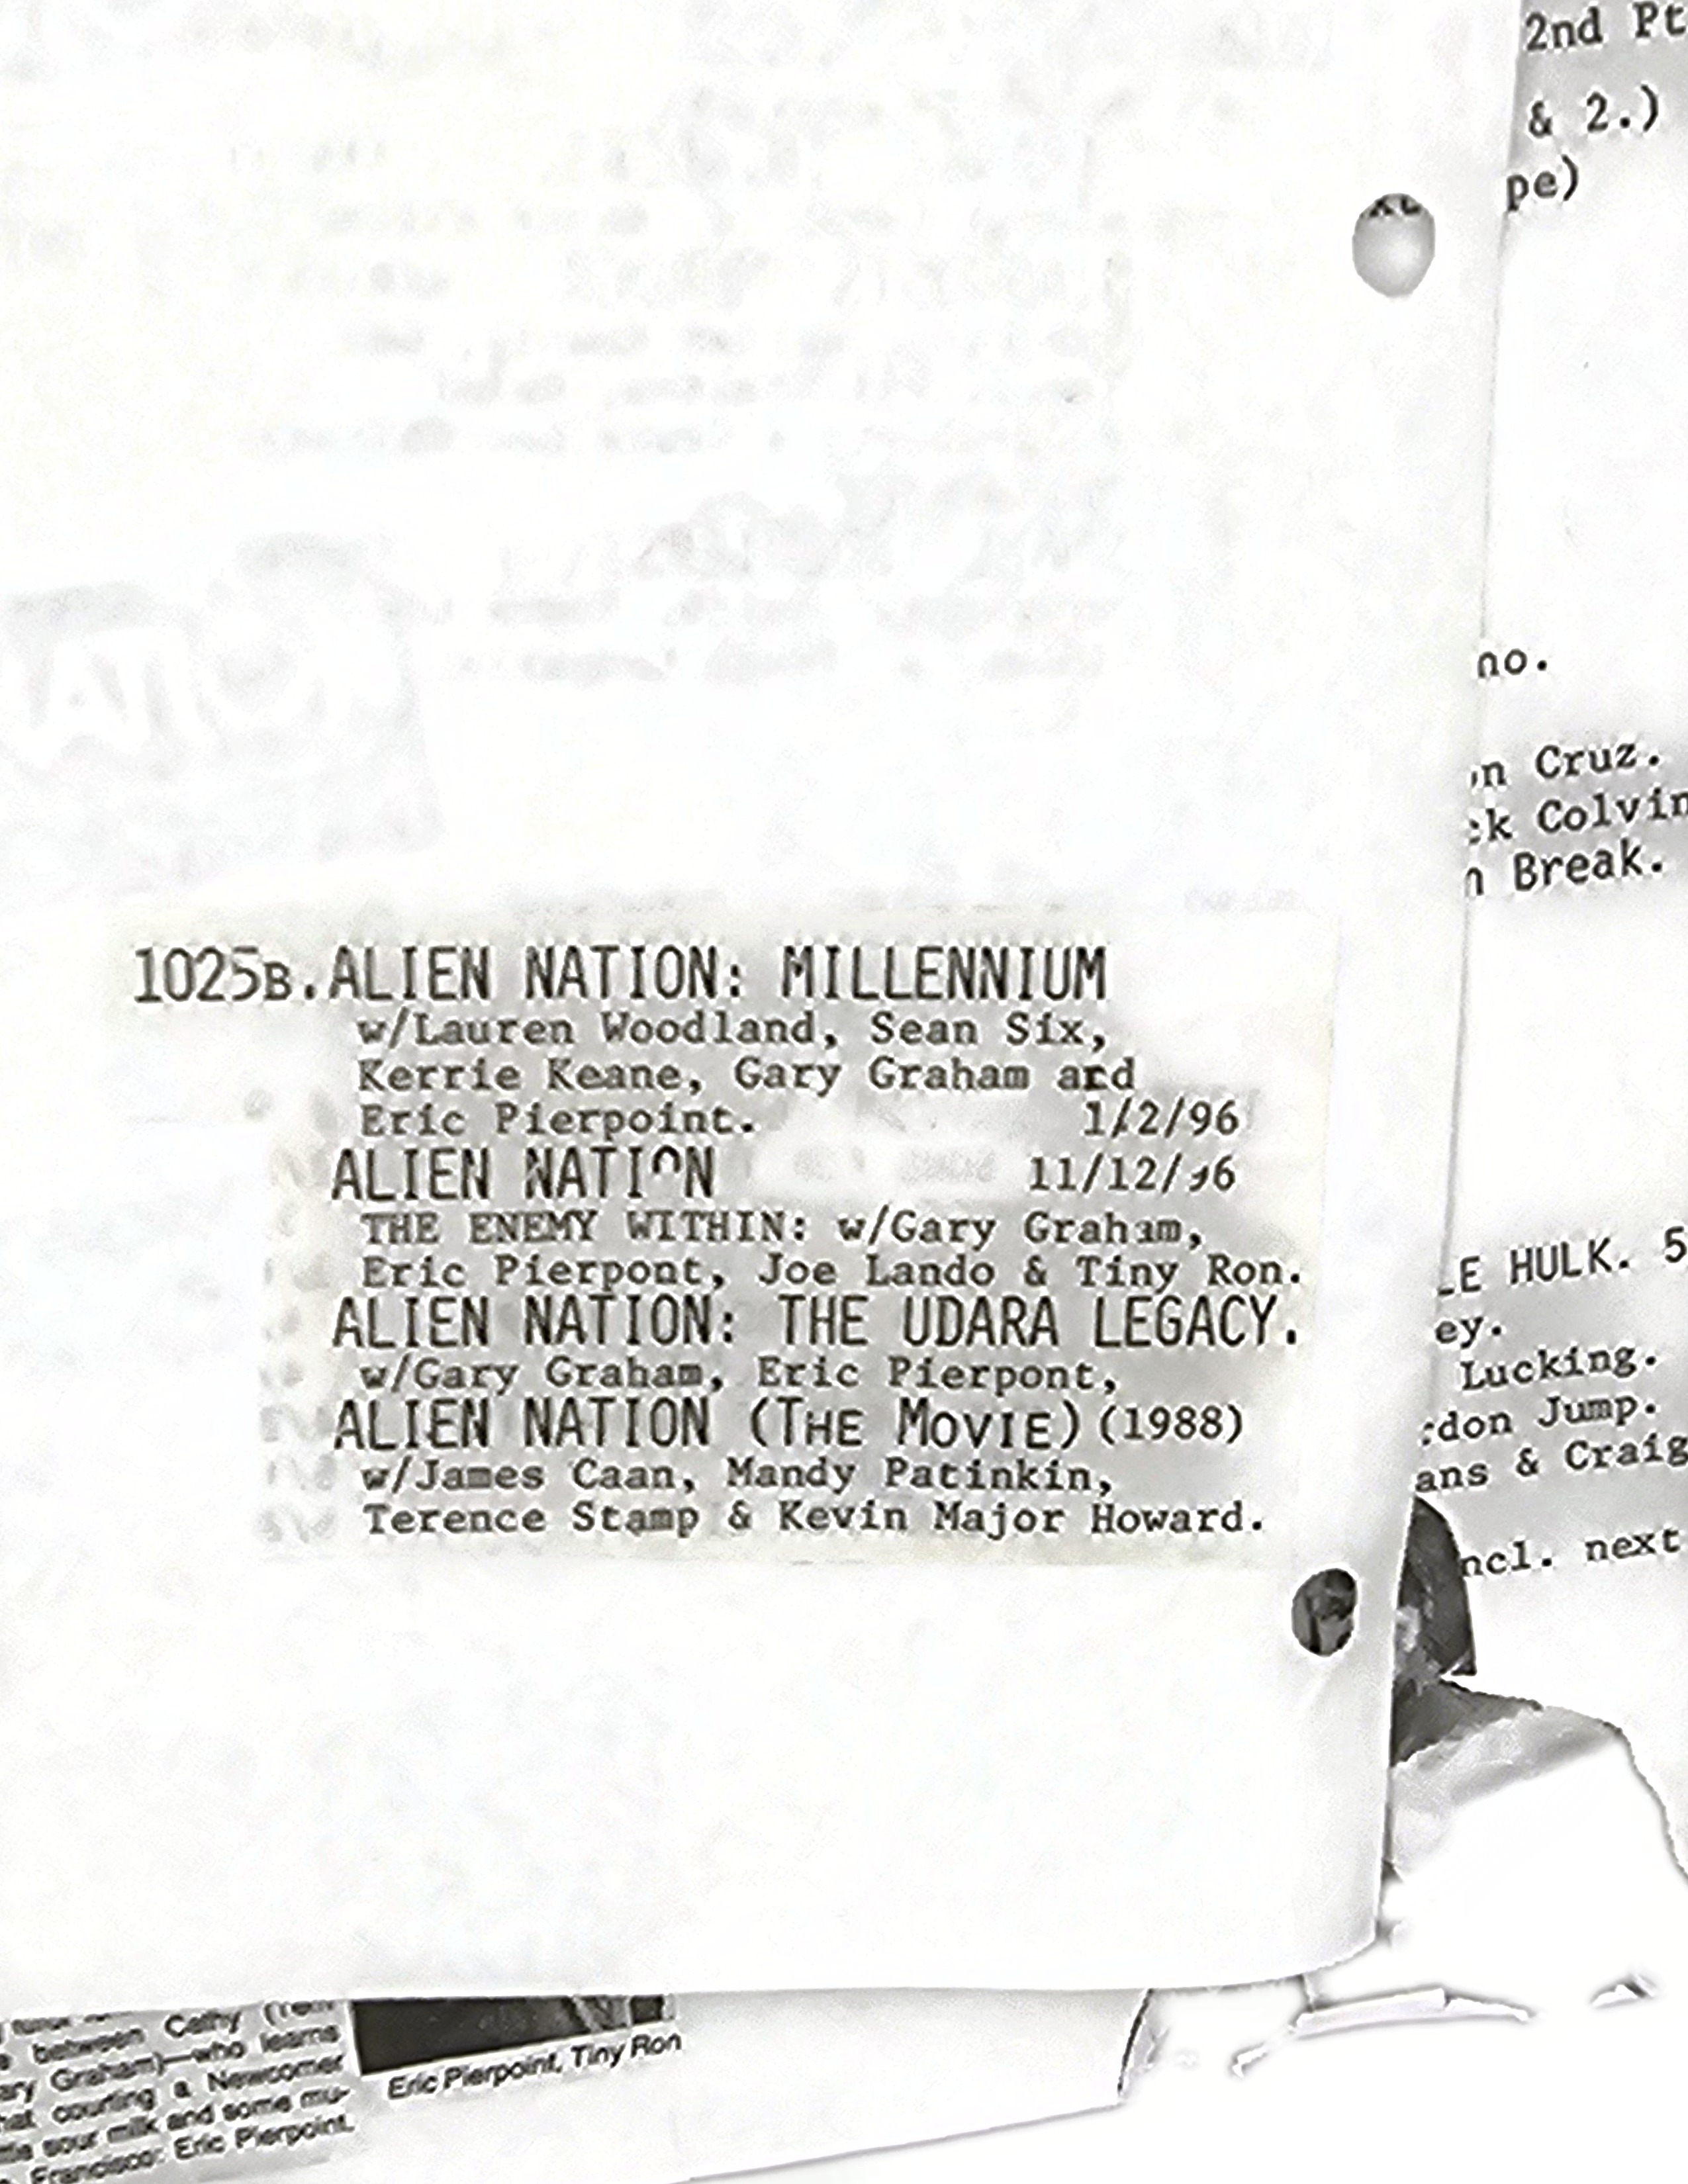 1025B. ALIEN NATION: MILLENNIUM
w/Lauren Woodland, Sean Six,
Kerrie Keane, Gary Graham ard
Eric Pierpoint. 1/2/96
ALIEN NATION 11/12/96
THE ENEMY WITHIN: w/Gary Graham,
Eric Pierpont, Joe Lando & Tiny Ron.
ALIEN NATION: THE UDARA LEGACY.
w/Gary Graham, Eric Pierpont,
ALIEN NATION (THE MOVIE) (1988)
w/James Caan, Mandy Patinkin,
Terence Stamp & Kevin Major Howard.
2nd Pt
& 2.)
pe)
no.
n Cruz.
ck Colvin
n Break.
LE HULK. 5
ey.
Lucking.
rdon Jump.
ans & Craig
ncl. next
between Cathy
ary Graham)—who learns
hat courting a Newcomer
sour milk and some mu-
Francisco: Eric Pierpoint.
Eric Pierpoint, Tiny Ron